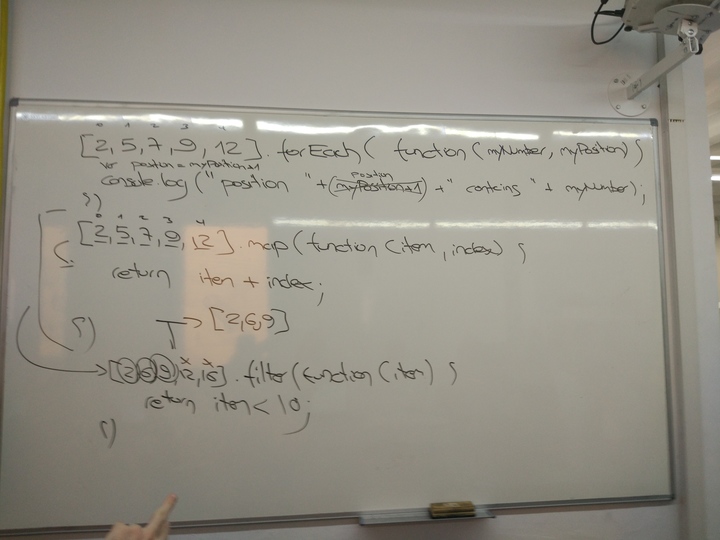 0 1 2 3 4
[2, 5, 7, 9, 12]. forEach( function(myNumber, myPosition) {
var position = myPosition+1
position
console.log("position " + (myPosition+1) + " contains " + myNumber);
})
0 1 2 3 4
[2, 5, 7, 9, 12]. map(function(item, index) {
return item + index;
})
→ [2,6,9]
[2,6,9,12,16]. filter(function(item) {
return item < 10;
})